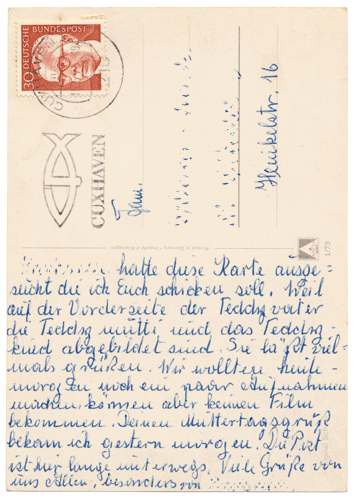 30 DEUTSCHE BUNDESPOST
CUXHAVEN
Fam.
Henkelstr. 16
1/73
hatte diese Karte ausge-
sucht die ich Euch schicken soll. Weil
auf der Vorderseite der Teddy vater
die Teddy mutti und das Teddy-
kind abgebildet sind. Sie läßt viel-
mals grüßen. Wir wollten heute
morgen noch ein paar Aufnahmen
machen, können aber keinen Film
bekommen. Deinen Muttertagsgruß
bekam ich gestern morgen. Die Post
ist hier lange unterwegs. Viele Grüße von
uns Allen, besonders von